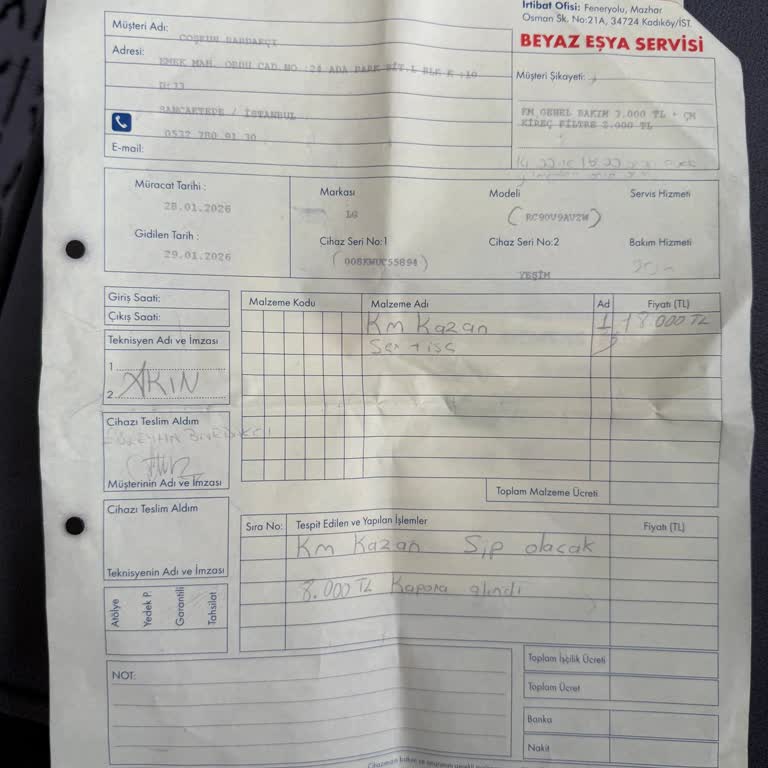 İrtibat Ofisi: Feneryolu, Mazhar
Osman Sk. No:21A, 34724 Kadıköy/İST.
BEYAZ EŞYA SERVİSİ
Müşteri Adı:
COŞKUN
Adresi:
EMEK MAH. ORDU CAD NO :24 ADA PARK SİT.L BLK K :10
D:33
SANCAKTEPE / İSTANBUL
0532 780 91 30
E-mail:
Müşteri Şikayeti:
KM GENEL BAKIM 3.000 TL + ÇM
KİREÇ FİLTRE 2.000 TL
Müracat Tarihi :
28.01.2026
Gidilen Tarih :
29.01.2026
Markası
LG
Modeli
(RC90V9AV2W)
Servis Hizmeti
Cihaz Seri No:1
(008KWUC55894)
Cihaz Seri No:2
YEŞİM
Bakım Hizmeti
Giriş Saati:
Çıkış Saati:
Teknisyen Adı ve İmzası
1
AKIN
2
Cihazı Teslim Aldım
Müşterinin Adı ve İmzası
Cihazı Teslim Aldım
Teknisyenin Adı ve İmzası
Atölye
Yedek P.
Garantili
Tahsilat
Malzeme Kodu
Malzeme Adı
Ad
Fiyatı (TL)
Km Kazan 1 18.000 TL
Toplam Malzeme Ücreti
Sıra No:
Tespit Edilen ve Yapılan İşlemler
Fiyatı (TL)
Km Kazan Sip olacak
8.000 TL Kapora alındı
NOT:
Toplam İşçilik Ücreti
Toplam Ücret
Banka
Nakit